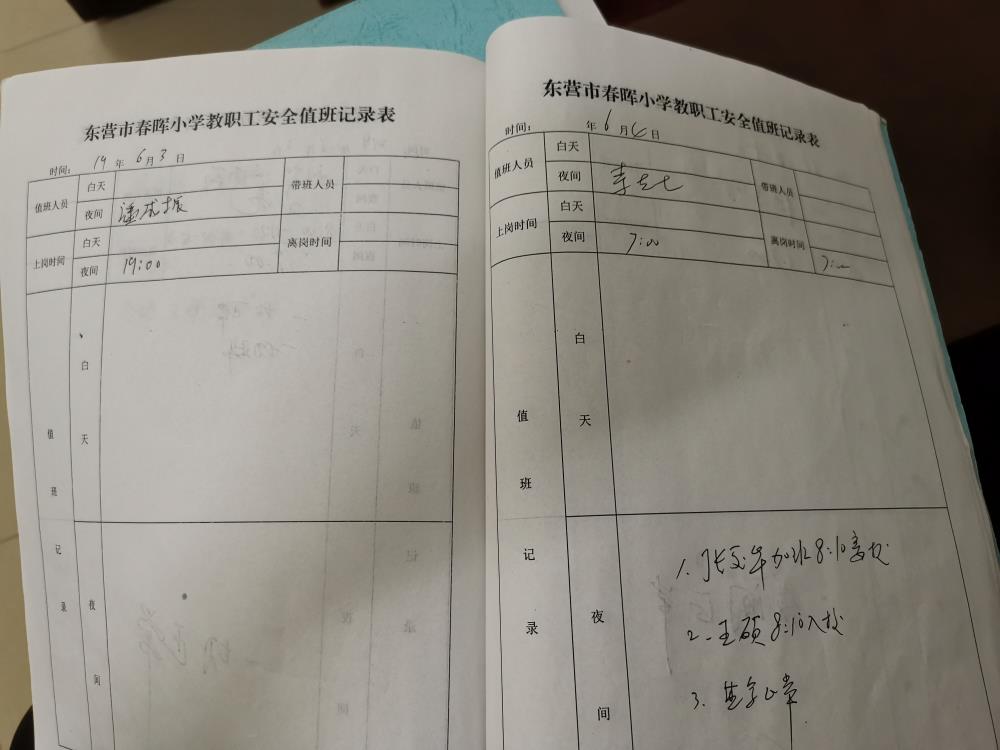 东营市春晖小学教职工安全值班记录表
时间: 19 年 6 月 3 日
值班人员 白天 带班人员
夜间
上岗时间 白天 离岗时间
夜间 19:00
值班记录
白天
夜间
东营市春晖小学教职工安全值班记录表
时间: 年 6 月 日
值班人员 白天 带班人员
夜间
上岗时间 白天 离岗时间
夜间 7:00
值班记录
白天
夜间
1. 加班8:10离校
2. 王硕 8:10入校
3. 正常